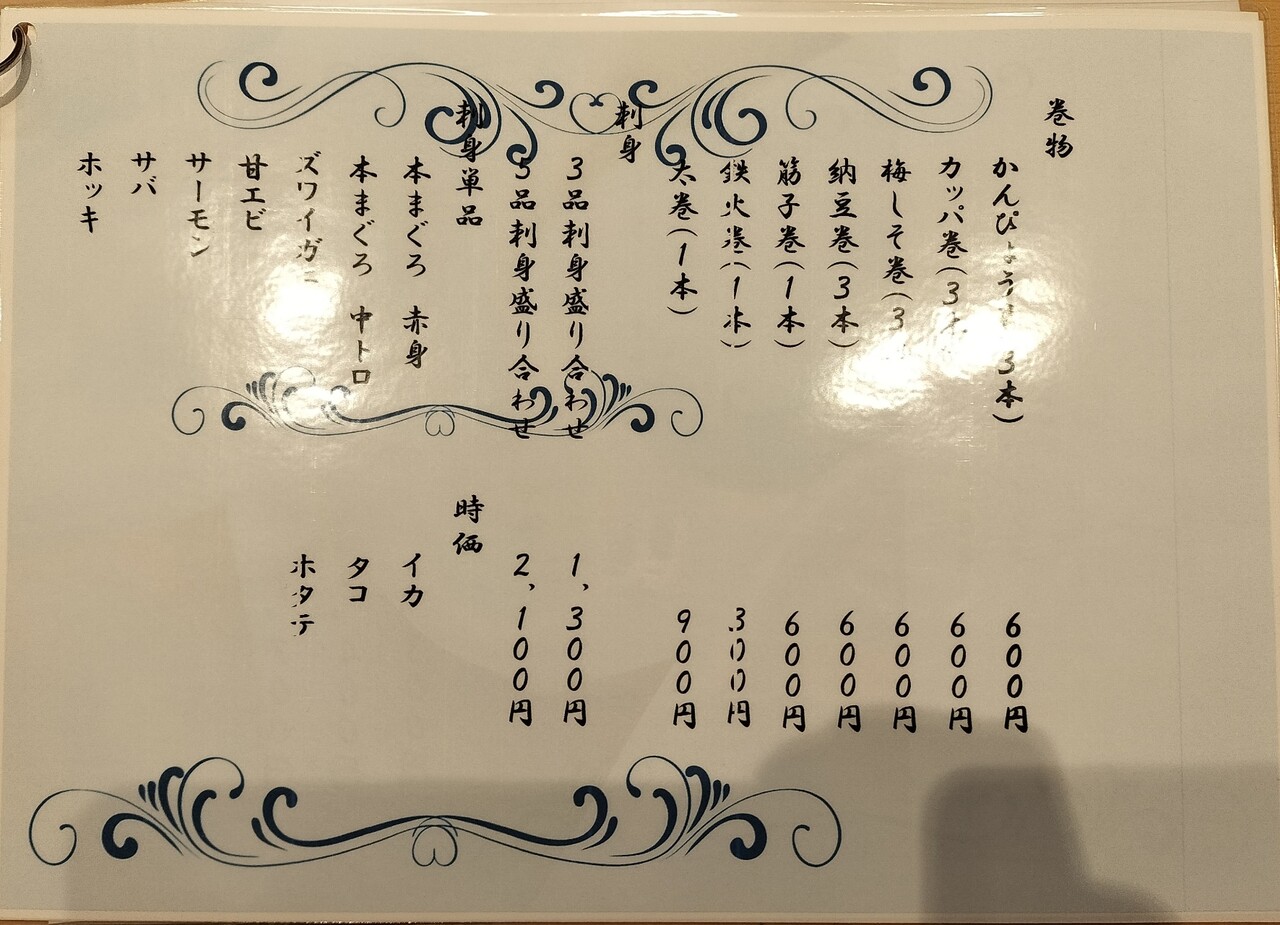 巻物
かんぴょう巻(3本) 600円
カッパ巻(3本) 600円
梅しそ巻(3 600円
納豆巻(3本) 600円
筋子巻(1本) 600円
鉄火巻(1本) 300円
太巻(1本) 900円
刺身
3品刺身盛り合わせ 1,300円
5品刺身盛り合わせ 2,100円
刺身単品 時価
本まぐろ 赤身 イカ
本まぐろ 中トロ タコ
ズワイガニ ホタテ
甘エビ
サーモン
サバ
ホッキ